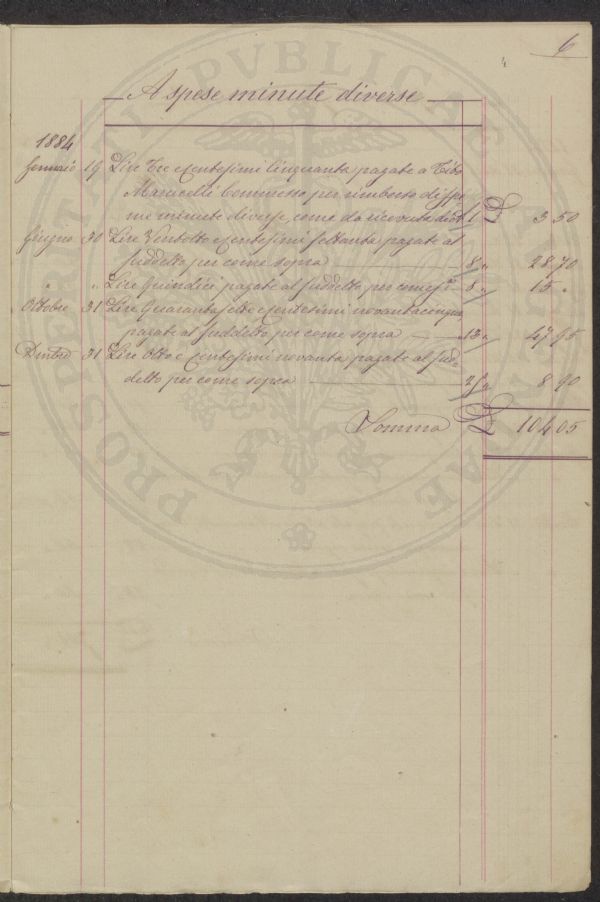 6
A spese minute diverse
1884
Gennaio 19 Lire Tre e Centesimi Cinquanta pagate a Tito
Maricelli Commesso per rimborso di spe-
se minute diverse, come da ricevuta di N. 1 £ 3 50
Giugno 30 Lire Ventotto e Centesimi Settanta pagate al
suddetto per come sopra 8 " 28 70
" " Lire Quindici pagate al suddetto per come sa. 8 " 15 "
Ottobre 31 Lire Quarantasette e Centesimi novantacinque
pagate al suddetto per come sopra 13 " 47 95
Dicembre 31 Lire Otto e Centesimi novanta pagate al sud-
detto per come sopra 8 90
Somma £ 104 05
PROSPERITATI PVBLICAE AVGENDAE